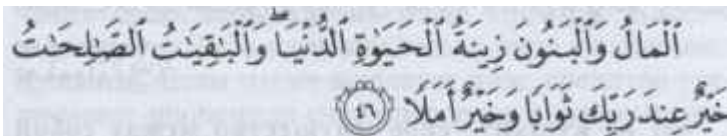 ٱلْمَالُ وَٱلْبَنُونَ زِينَةُ ٱلْحَيَوٰةِ ٱلدُّنْيَاۖ وَٱلْبَٰقِيَٰتُ ٱلصَّٰلِحَٰتُ
خَيْرٌ عِندَ رَبِّكَ ثَوَابًا وَخَيْرٌ أَمَلًا ٤٦